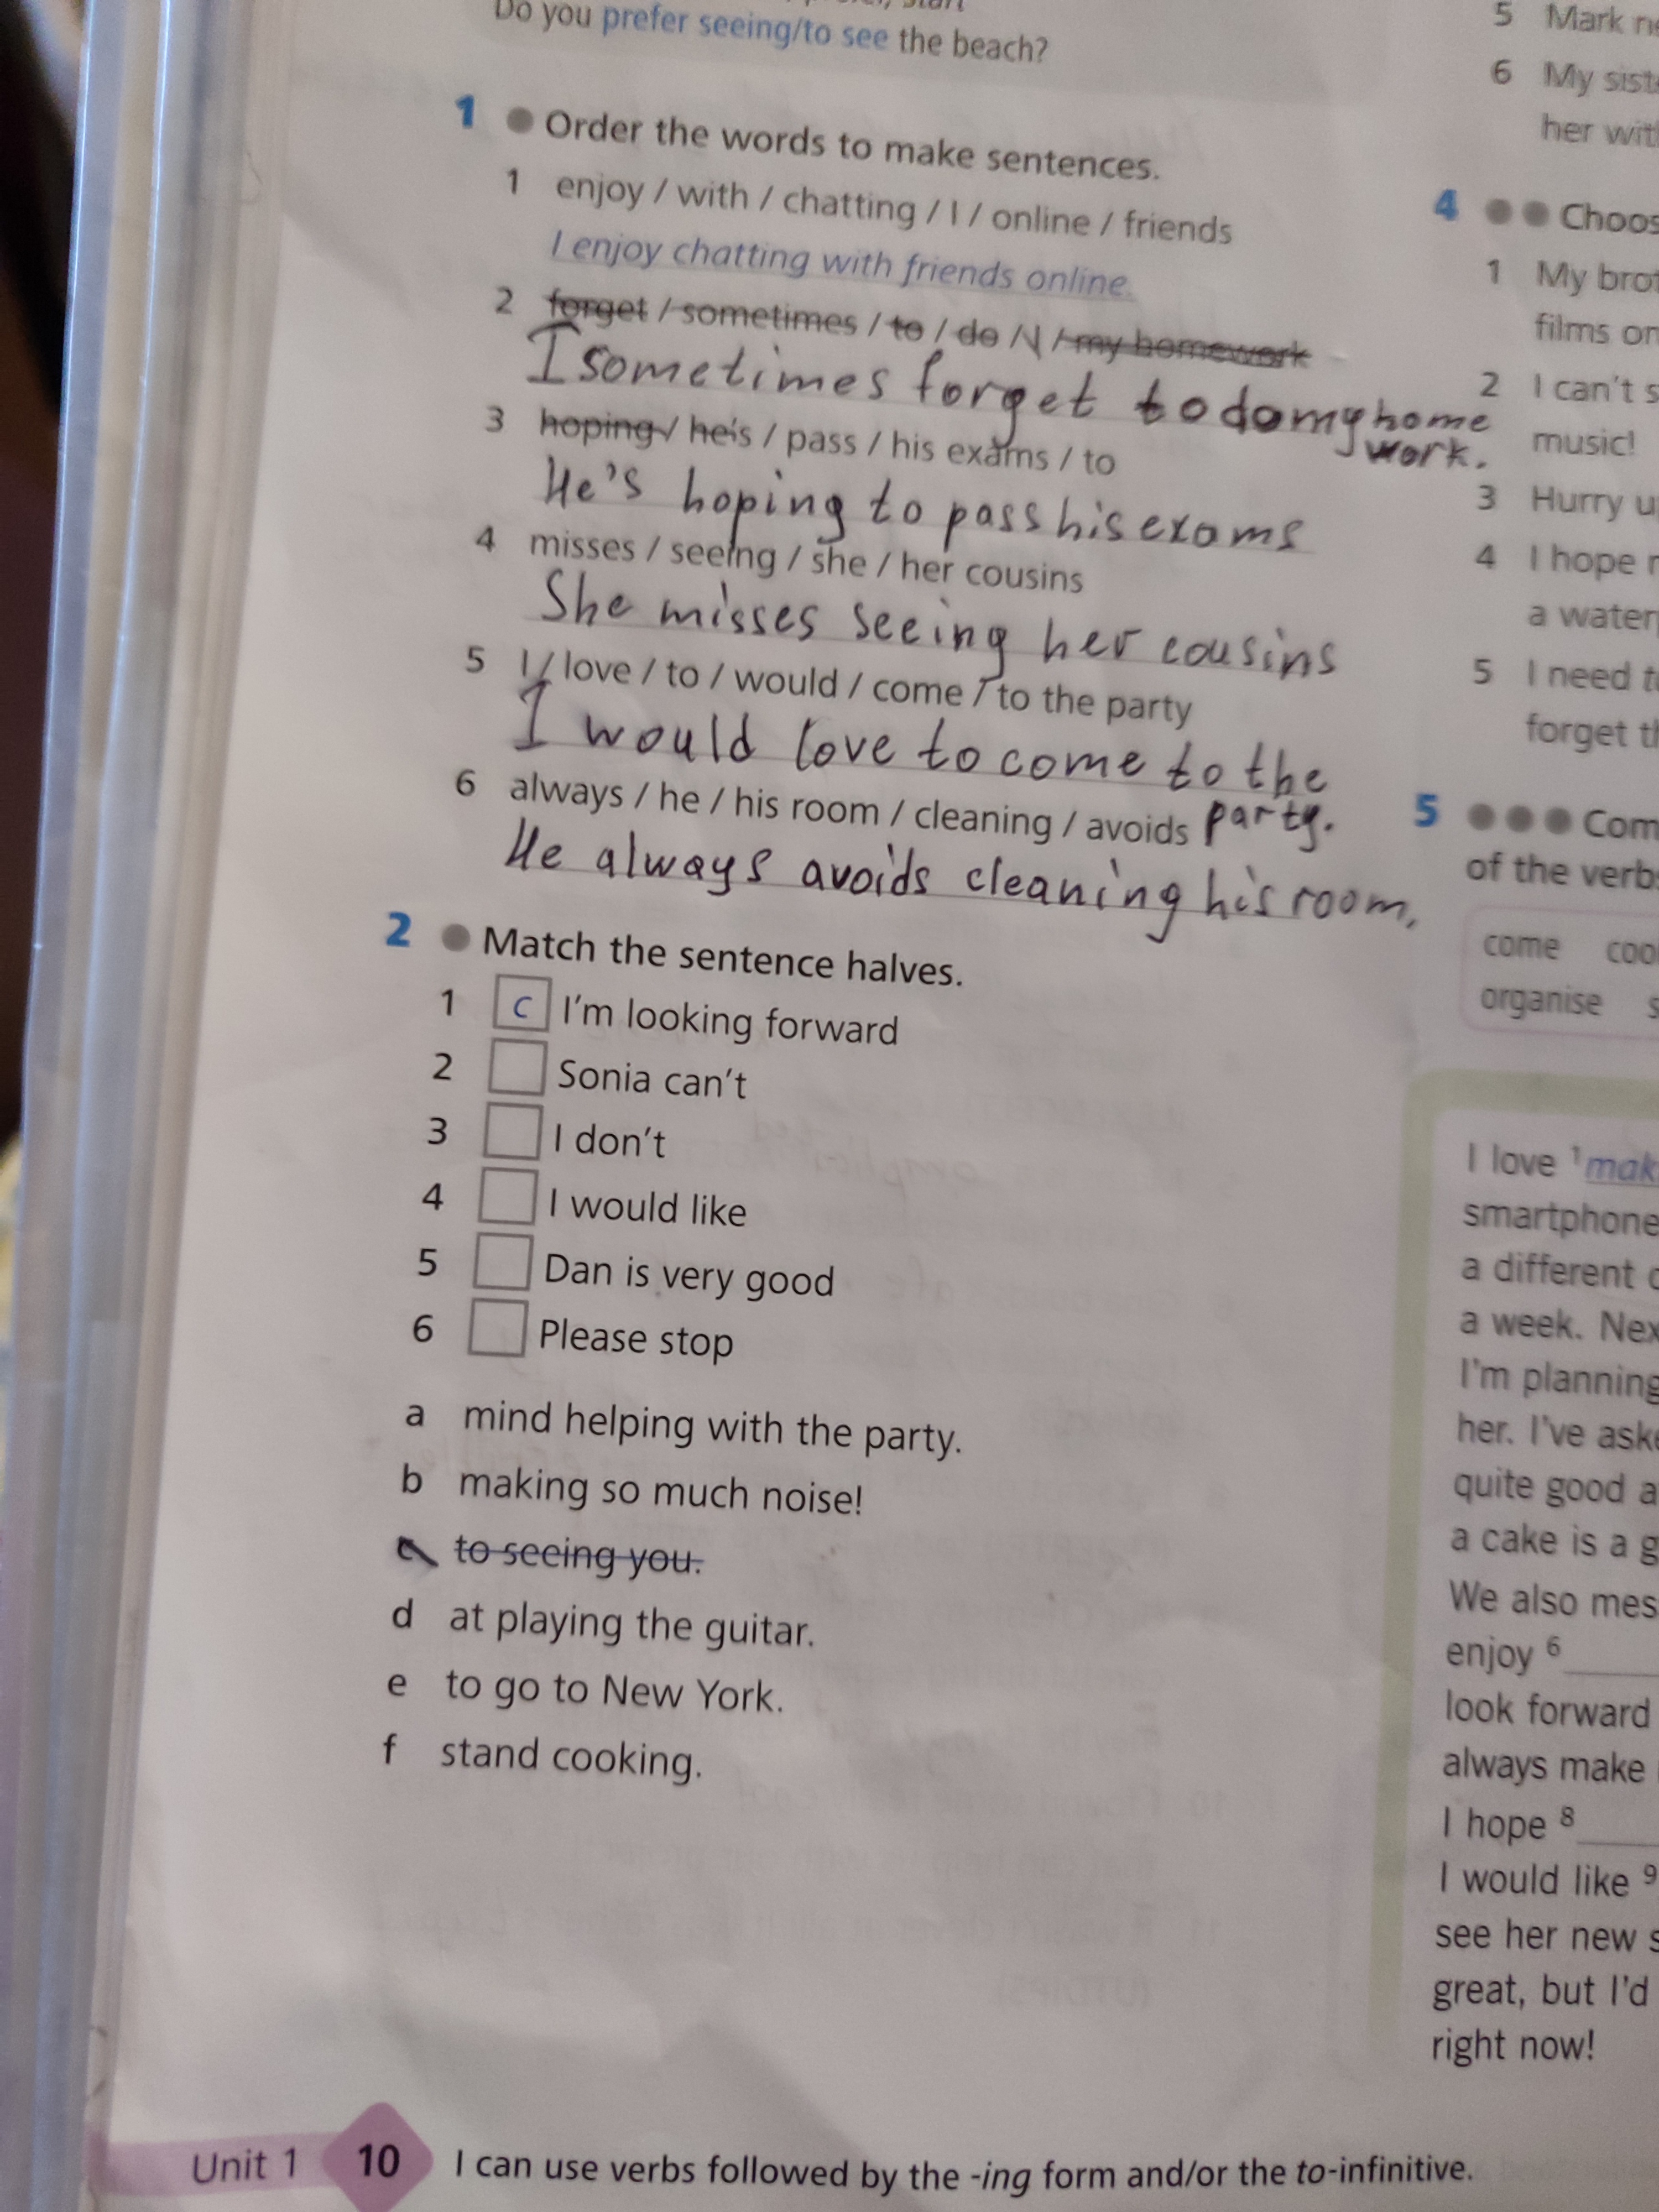 Do you prefer seeing/to see the beach?
1 Order the words to make sentences.
1 enjoy / with / chatting / I / online / friends
I enjoy chatting with friends online.
2 forget / sometimes / to / do / I / my homework
I sometimes forget to do my home
work.
3 hoping / he's / pass / his exams / to
He's hoping to pass his exams
4 misses / seeing / she / her cousins
She misses seeing her cousins
5 I / love / to / would / come / to the party
I would love to come to the
party.
6 always / he / his room / cleaning / avoids
He always avoids cleaning his room,
2 Match the sentence halves.
1 c I'm looking forward
2 Sonia can't
3 I don't
4 I would like
5 Dan is very good
6 Please stop
a mind helping with the party.
b making so much noise!
c to seeing you.
d at playing the guitar.
e to go to New York.
f stand cooking.
Unit 1 10 I can use verbs followed by the -ing form and/or the to-infinitive.
5 Mark
6 My
her
4
1 My
films
2 I can't
music!
3 Hurry
4 I hope
a
5 I need
forget
5
of the
come
organise
I love 1
smartphone
a different
a week.
I'm planning
her. I've
quite good
a cake is a
We also
enjoy 6
look forward
always make
I hope 8
I would like 9
see her new
great, but I'd
right now!